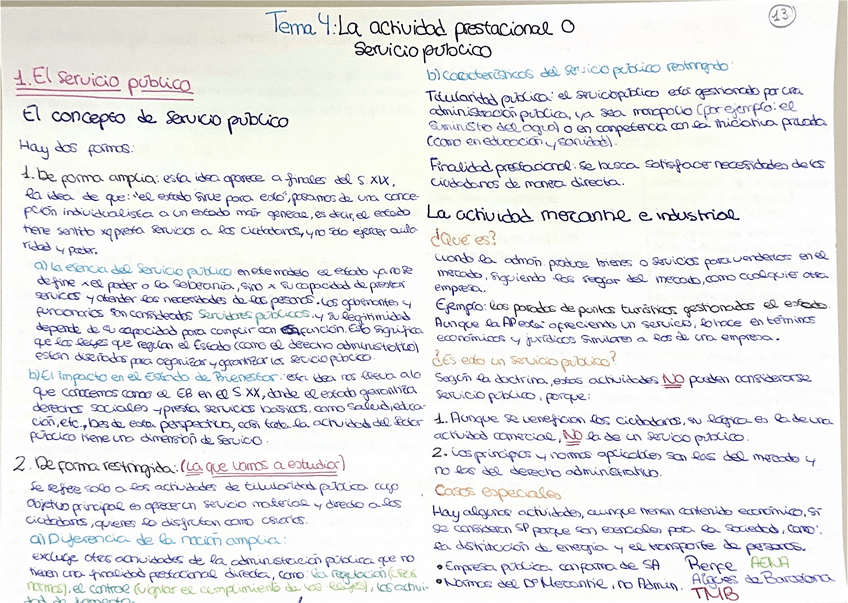 Tema 4: La actividad prestacional o
Servicio público
13
1. El servicio público
El concepto de servicio público
Hay dos formas:
1. De forma amplia: esta idea aparece a finales del S. XIX,
la idea de que: "el estado sirve para esto", pasamos de una conce-
pción individualista a un estado más general, es decir, el estado
tiene sentido xq presta servicios a los ciudadanos, y no solo ejercer auto-
ridad y poder.
a) La esencia del servicio público en este modelo el estado ya no se
define x el poder o la soberanía, sino x su capacidad de prestar
servicios y atender las necesidades de las personas. Los gobernantes y
funcionarios son considerados Servidores públicos, y su legitimidad
depende de su capacidad para cumplir con función. Esto significa
que las leyes que regulan el Estado (como el derecho administrativo)
están diseñadas para organizar y garantizar los servicio público.
b) El impacto en el Estado de Bienestar: esta idea nos lleva a lo
que conocemos como el EB en el S XX, donde el estado garantiza
derechos sociales y presta servicios básicos, como salud, educa-
ción, etc., Des de esta perspectiva, casi toda la actividad del sector
público tiene una dimensión de servicio.
2. De forma restringida: (La que vamos a estudiar)
Se refiere solo a las actividades de titularidad pública cuyo
objetivo principal es ofrecer un servicio material y directo a los
ciudadanos, quienes lo disfrutan como usuarios.
a) Diferencia de la noción amplia:
excluye otras actividades de la administración pública que no
tienen una finalidad prestacional directa, como: la regulación (crear
normas), el control (vigilar el cumplimiento de las leyes), las activi-
dad de fomento
b) Características del servicio público restringido:
Titularidad pública: el servicio público está gestionado por una
administración pública, ya sea monopolio (por ejemplo: el
suministro del agua) o en competencia con la iniciativa privada
(como en educación y sanidad).
Finalidad prestacional: se busca satisfacer necesidades de los
ciudadanos de manera directa.
La actividad mercantil e industrial
¿Qué es?
cuando la admón produce bienes o servicios para venderlos en el
mercado, siguiendo las reglas del mercado, como cualquier otra
empresa.
Ejemplo: las paradas de puntos turísticos gestionados el estado.
Aunque la AP está ofreciendo un servicio, lo hace en términos
económicos y jurídicos similares a los de una empresa.
¿Es esto un servicio público?
Según la doctrina, estas actividades NO pueden considerarse
servicio público, porque:
1. Aunque se benefician los ciudadanos, su lógica es la de una
actividad comercial, NO la de un servicio público.
2. Los principios y normas aplicables son las del mercado y
no las del derecho administrativo.
Casos especiales
Hay algunas actividades, aunque tienen contenido económico, sí
se consideran SP porque son esenciales para la sociedad, como:
la distribución de energía y el transporte de personas.
• Empresa pública con forma de SA Renfe AENA
• Normas del Dº Mercantil, no Admin. Aigües de Barcelona
TMB